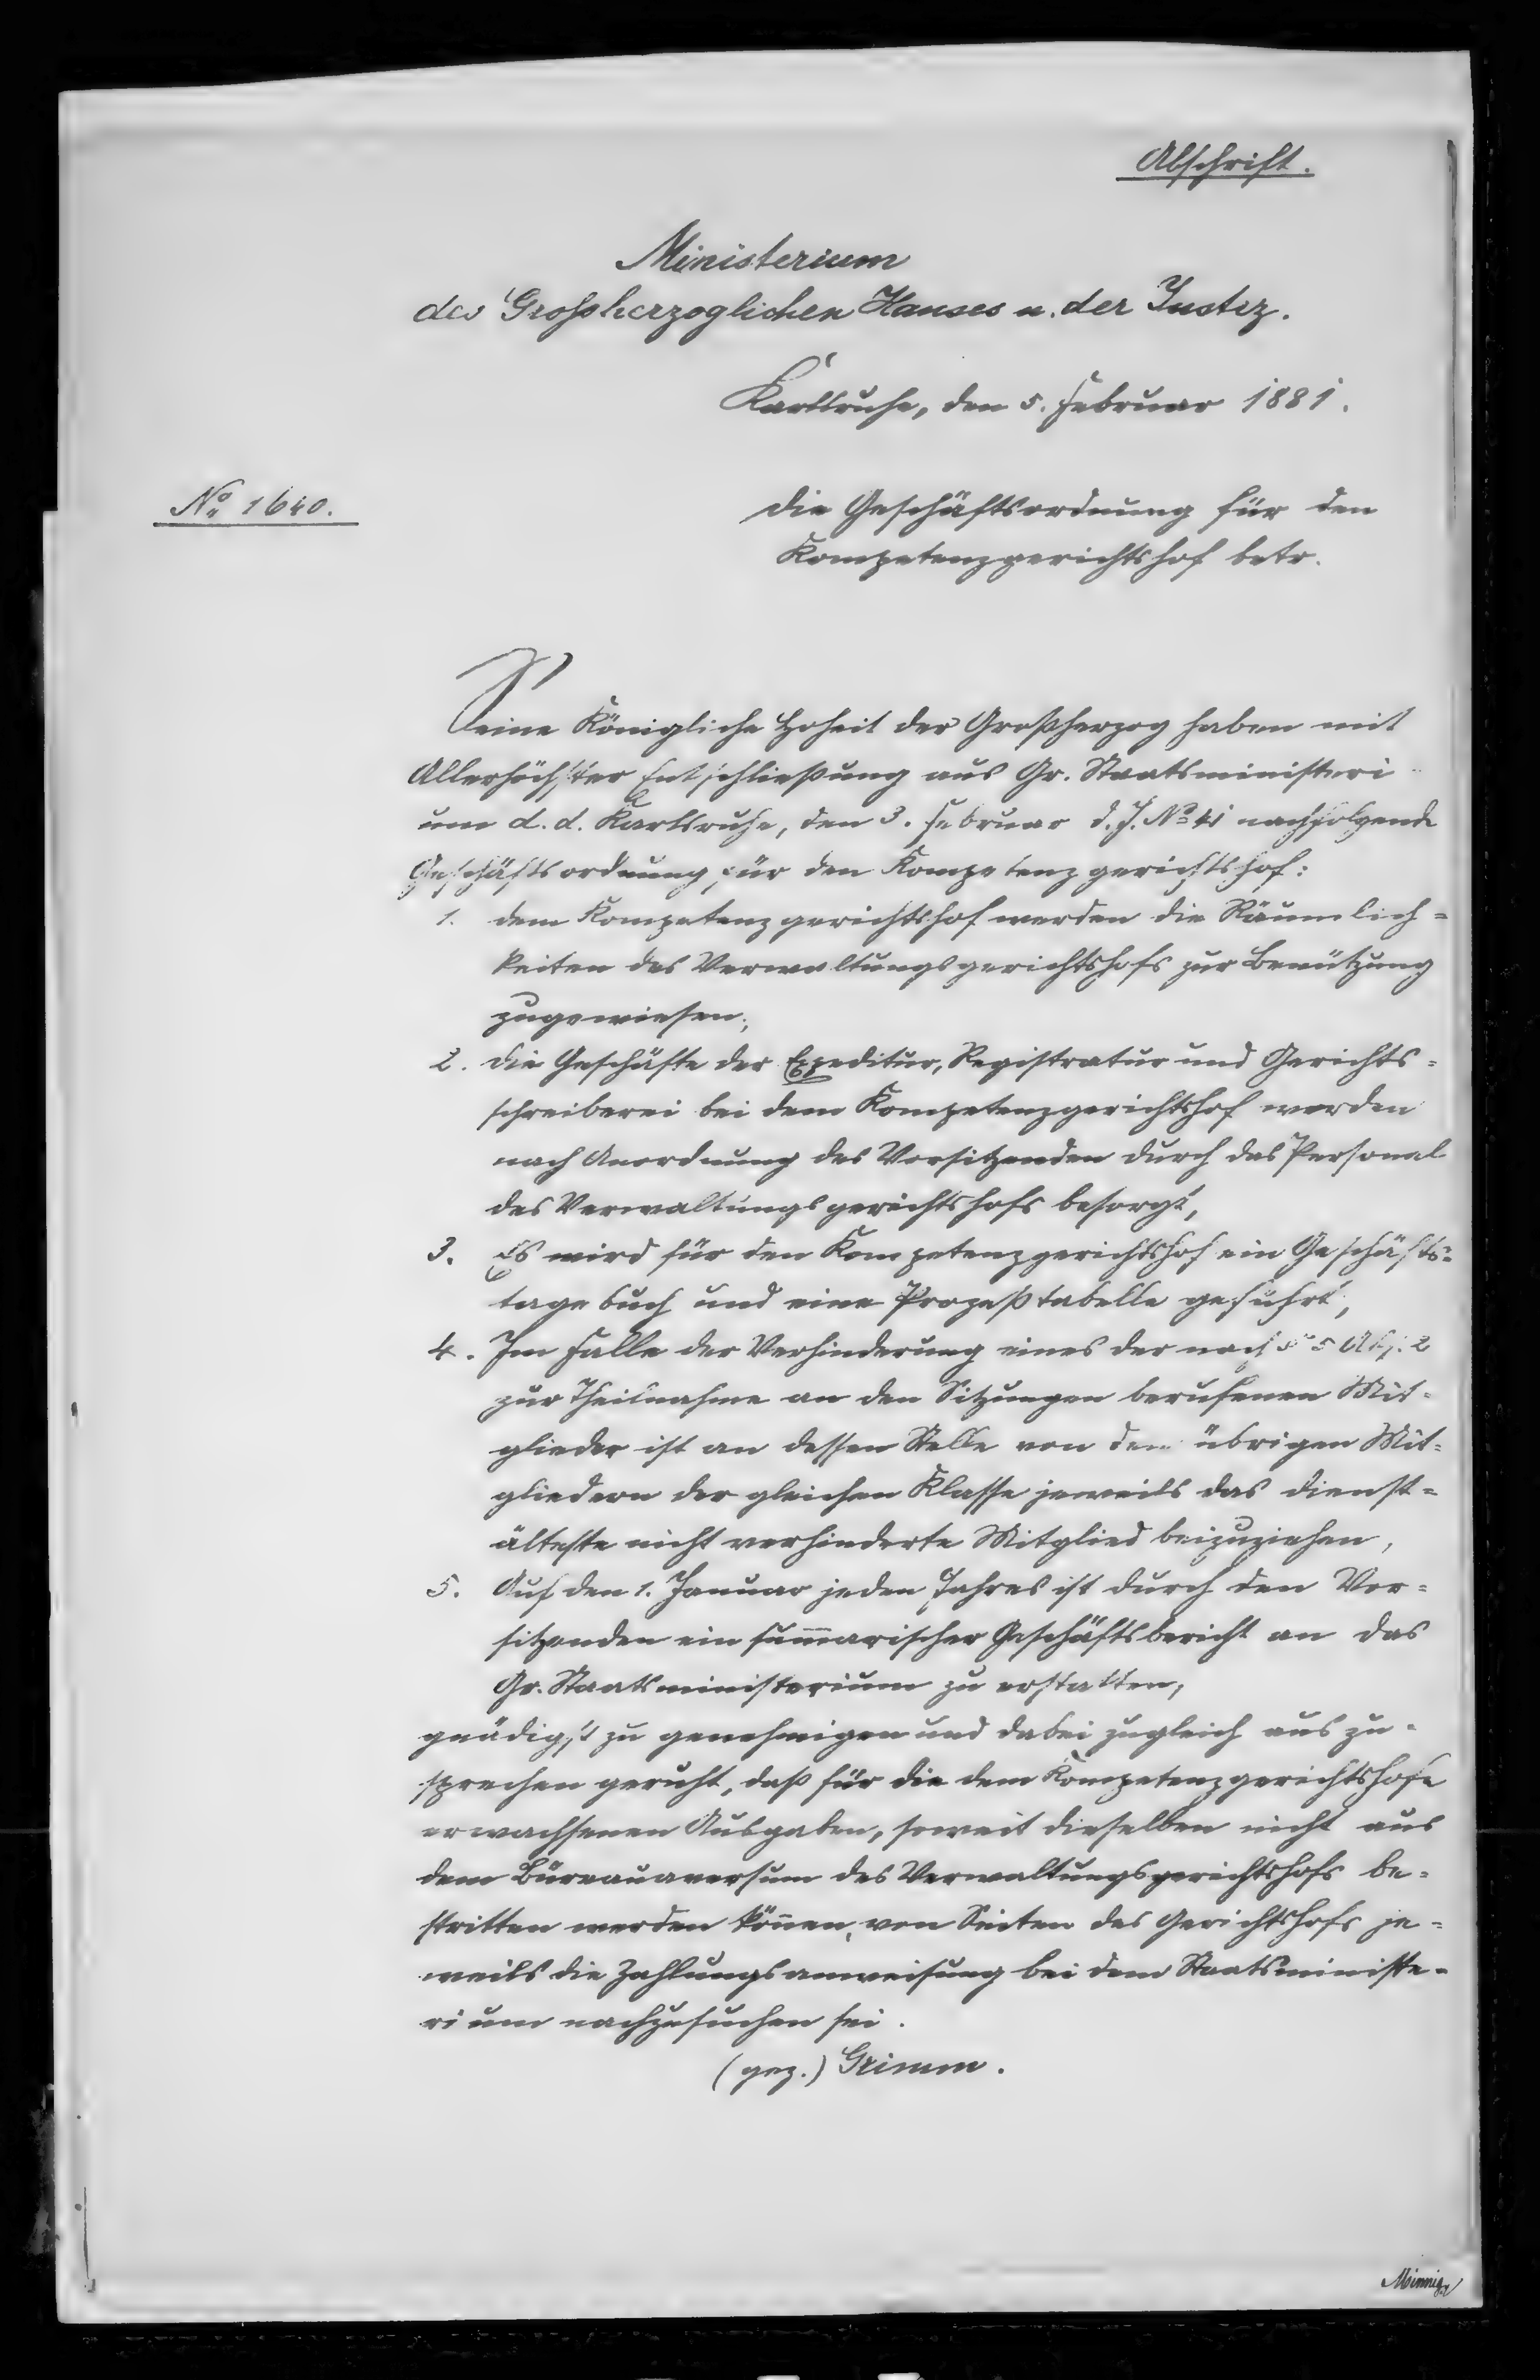 Abschrift.
Ministerium
des Großherzoglichen Hauses u. der Justiz.
Karlsruhe, den 5. Februar 1881.
No. 1640.
Die Geschäftsordnung für den
Kompetenzgerichtshof betr.
Seine Königliche Hoheit der Großherzog haben mit
Allerhöchster Entschließung aus Gr. Staatsministeri-
um d. d. Karlsruhe, den 3. Februar d. J. No 41 nachfolgende
Geschäftsordnung für den Kompetenzgerichtshof:
1. dem Kompetenzgerichtshof werden die Räumlich=
keiten des Verwaltungsgerichtshofs zur Benützung
zugewiesen;
2. die Geschäfte der Expeditur, Registratur und Gerichts=
schreiberei bei dem Kompetenzgerichtshof werden
nach Anordnung des Vorsitzenden durch das Personal
des Verwaltungsgerichtshofs besorgt,
3. Es wird für den Kompetenzgerichtshof ein Geschäfts=
tagebuch und eine Prozeßtabelle geführt,
4. Im Falle der Verhinderung eines der nach § 5 Abs. 2
zur Theilnahme an den Sitzungen berufenen Mit=
glieder ist an dessen Stelle von den übrigen Mit=
gliedern der gleichen Klasse jeweils das dienst=
älteste nicht verhinderte Mitglied beizuziehen,
5. Auf den 1. Januar jeden Jahres ist durch den Vor=
sitzenden ein sum̅arischer Geschäftsbericht an das
Gr. Staatsministerium zu erstatten,
gnädigst zu genehmigen und dabei zugleich auszu=
sprechen geruht, daß für die dem Kompetenzgerichtshofe
erwachsenen Ausgaben, soweit dieselben nicht aus
dem Büreauaversum des Verwaltungsgerichtshofs be=
stritten werden kön̅en, von Seiten des Gerichtshofs je=
weils die Zahlungsanweisung bei dem Staatsministe=
rium nachzusuchen sei.
(gez.) Grimm.